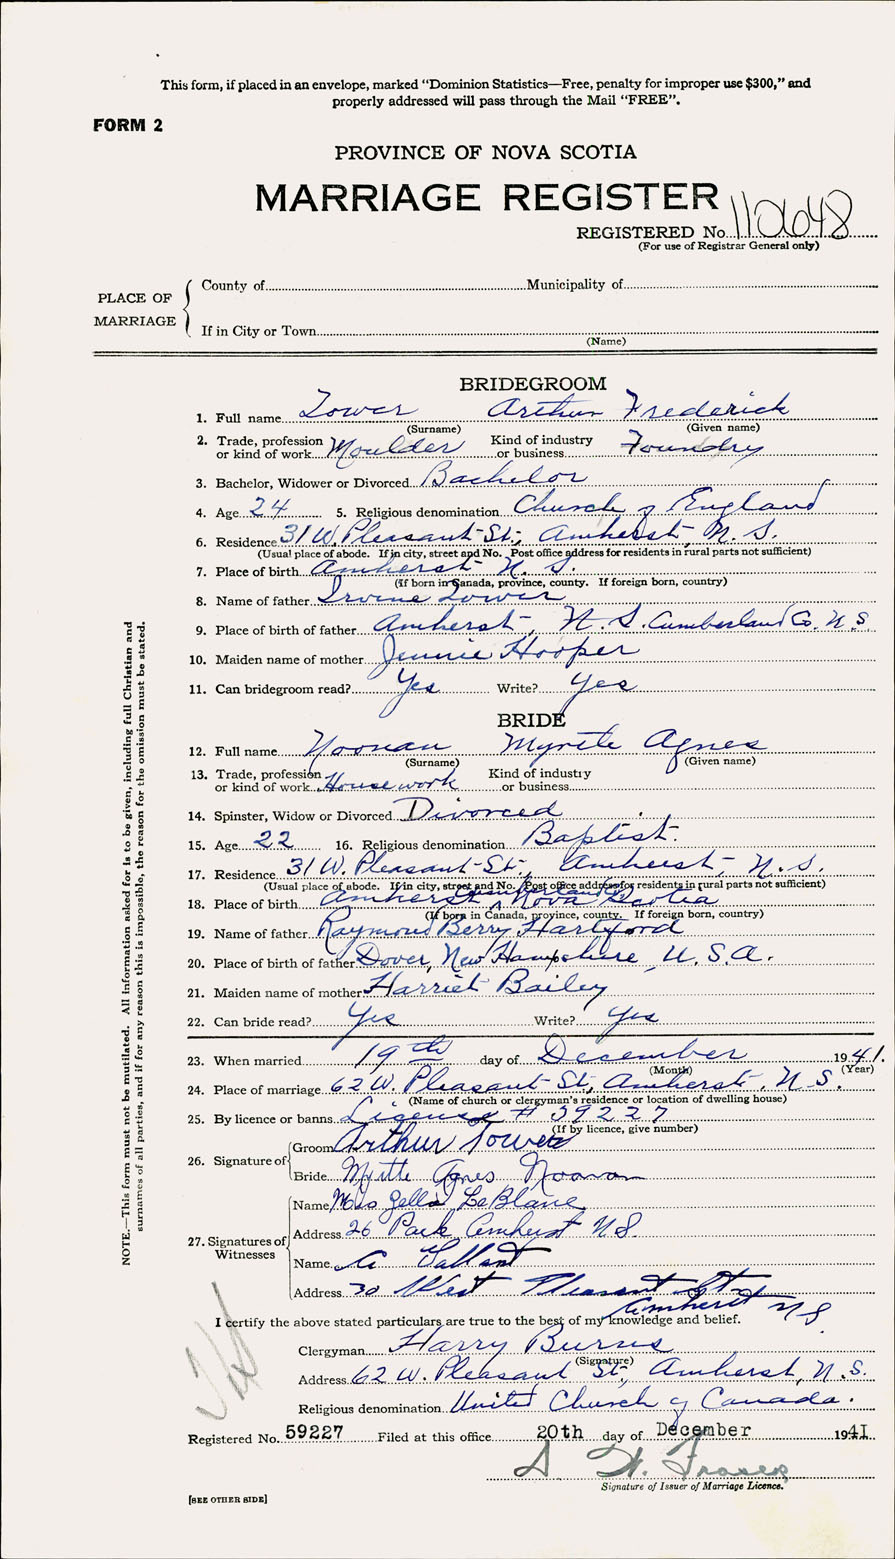 This form, if placed in an envelope, marked “Dominion Statistics—Free, penalty for improper use $300,” and
properly addressed will pass through the Mail “FREE”.
FORM 2
PROVINCE OF NOVA SCOTIA
MARRIAGE REGISTER
REGISTERED No. 110648
(For use of Registrar General only)
PLACE OF MARRIAGE
County of Municipality of
If in City or Town
(Name)
BRIDEGROOM
1. Full name Tower Arthur Frederick
(Surname) (Given name)
2. Trade, profession or kind of work Moulder Kind of industry or business Foundry
3. Bachelor, Widower or Divorced Bachelor
4. Age 24 5. Religious denomination Church of England
6. Residence 31 W. Pleasant St., Amherst, N. S.
(Usual place of abode. If in city, street and No. Post office address for residents in rural parts not sufficient)
7. Place of birth Amherst N. S.
(If born in Canada, province, county. If foreign born, country)
8. Name of father Irvine Tower
9. Place of birth of father Amherst, N. S. Cumberland Co. N. S
10. Maiden name of mother Jennie Hooper
11. Can bridegroom read? Yes Write? Yes
BRIDE
12. Full name Noonan Myrtle Agnes
(Surname) (Given name)
13. Trade, profession or kind of work House work Kind of industry or business
14. Spinster, Widow or Divorced Divorced
15. Age 22 16. Religious denomination Baptist.
17. Residence 31 W. Pleasant St., Amherst, N. S.
(Usual place of abode. If in city, street and No. Post office address for residents in rural parts not sufficient)
18. Place of birth Amherst Cumberland Co Nova Scotia
(If born in Canada, province, county. If foreign born, country)
19. Name of father Raymond Berry Hartford
20. Place of birth of father Dover, New Hampshire, U. S. A.
21. Maiden name of mother Harriet Bailey
22. Can bride read? Yes Write? Yes
23. When married 19th day of December 1941.
(Month) (Year)
24. Place of marriage 62 W. Pleasant St, Amherst, N. S.
(Name of church or clergyman’s residence or location of dwelling house)
25. By licence or banns License # 59227
(If by licence, give number)
26. Signature of
Groom Arthur Tower
Bride Myrtle Agnes Noonan
27. Signatures of Witnesses
Name Mrs Zella LeBlanc
Address 26 Park Amherst N S.
Name A Gallant
Address 30 West Pleasant St
Amherst N S.
I certify the above stated particulars are true to the best of my knowledge and belief.
Clergyman Harry Burns
(Signature)
Address 62 W. Pleasant St., Amherst, N. S.
Religious denomination United Church of Canada.
Registered No. 59227 Filed at this office 20th day of December 1941
Signature of Issuer of Marriage Licence.
[SEE OTHER SIDE]
NOTE.—This form must not be mutilated. All information asked for is to be given, including full Christian and
surnames of all parties, and if for any reason this is impossible, the reason for the omission must be stated.